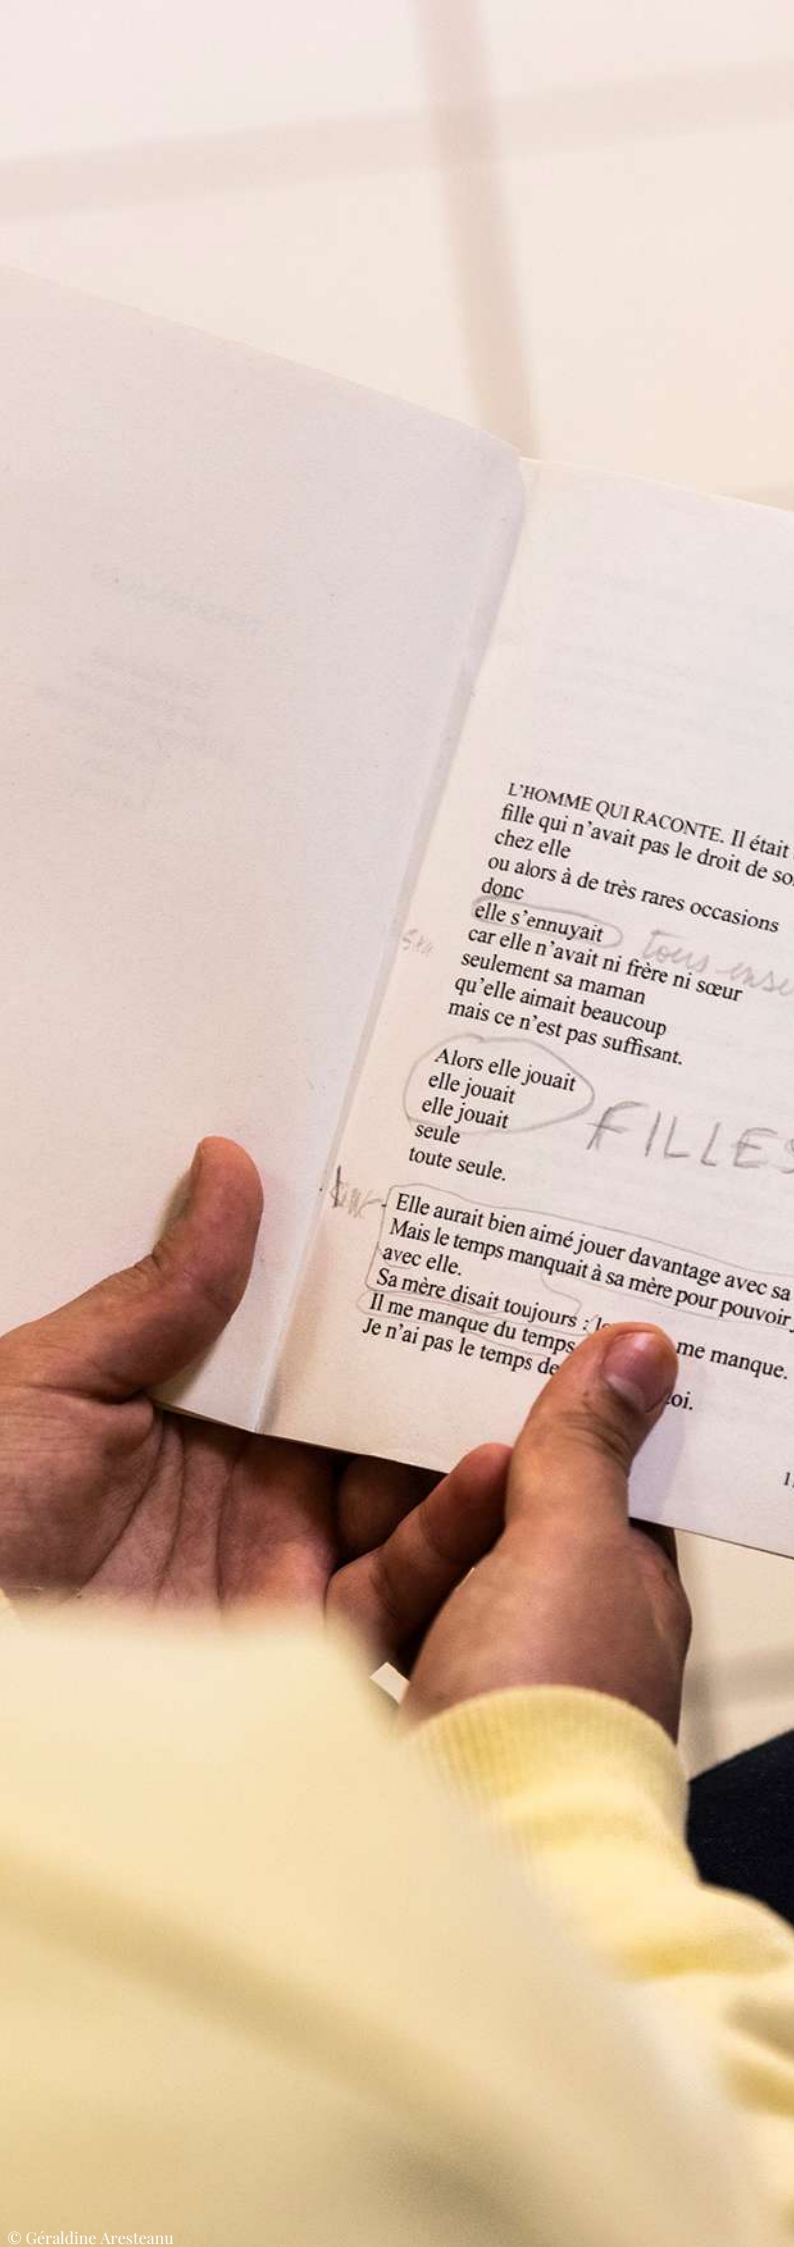 L'HOMME QUI RACONTE. Il était
fille qui n'avait pas le droit de
chez elle
ou alors à de très rares occasions
donc
elle s'ennuyait
tous
car elle n'avait ni frère ni sœur
seulement sa maman
qu'elle aimait beaucoup
mais ce n'est pas suffisant.
Alors elle jouait
elle jouait
elle jouait
FILLES
seule
toute seule.
Elle aurait bien aimé jouer davantage avec sa
Mais le temps manquait à sa mère pour pouvoir
avec elle.
Sa mère disait toujours : me manque.
Il me manque du temps
Je n'ai pas le temps de
© Géraldine Aresteanu